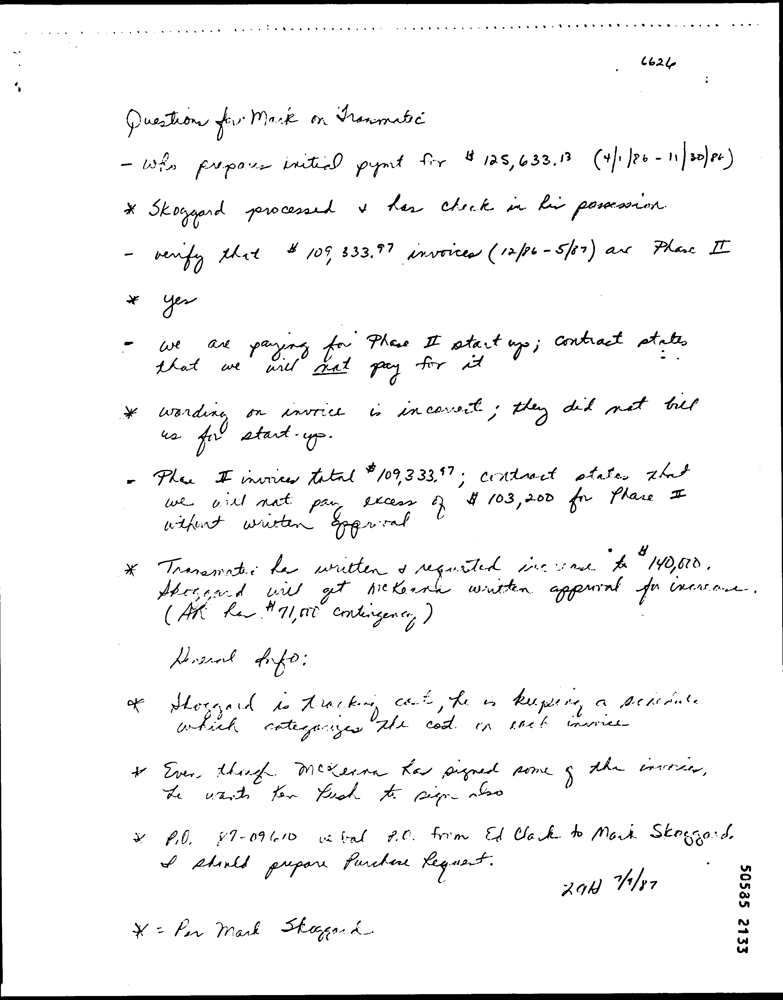 6626
Questions for Mark on Transmatic
- who prepares initial pymt for $125,633.13 (4/1/86 - 11/30/86)
* Skoggard processed & has check in his possession.
- verify that $109,333.97 invoices (12/86 - 5/87) are Phase II
* yes
- we are paying for Phase II start up; contract states
that we will not pay for it
* wording on invoice is incorrect; they did not bill
us for start-up.
- Phase II invoices total $109,333.97; contract states that
we will not pay excess of $103,200 for Phase II
without written approval
* Transmatic has written & requested increase to $140,000.
Skoggard will get McKenna written approval for increase.
(AK has $71,000 contingency)
General Info:
* Skoggard is tracking cost, he is keeping a schedule
which categorizes the cost on each invoice
* Even though McKenna has signed some of the invoices,
he wants Ken to sign also
* P.O. 87-09610 verbal P.O. from Ed Clark to Mark Skoggard.
I should prepare Purchase Request.
7/9/87
* = Per Mark Skoggard
50585 2133